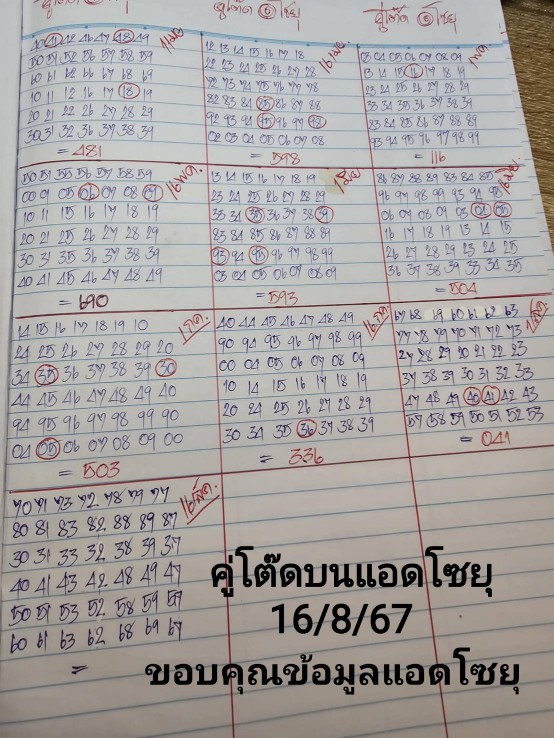 คู่โต๊ด ⑥ โซยุ
คู่โต๊ด ⑥ โซยุ
40 41 42 46 47 48 49
50 51 52 56 57 58 59
60 61 62 66 67 68 69
10 11 12 16 17 18 19
20 21 22 26 27 28 29
30 31 32 36 37 38 39
= 481
12 13 14 15 16 17 18
22 23 24 25 26 27 28
72 73 74 75 76 77 78
82 83 84 85 86 87 88
92 93 94 95 96 97 98
02 03 04 05 06 07 08
= 598
03 04 05 06 07 08 09
13 14 15 16 17 18 19
23 24 25 26 27 28 29
33 34 35 36 37 38 39
83 84 85 86 87 88 89
93 94 95 96 97 98 99
= 116
50 51 55 56 57 58 59
00 01 05 06 07 08 09
10 11 15 16 17 18 19
20 21 25 26 27 28 29
30 31 35 36 37 38 39
40 41 45 46 47 48 49
= 690
13 14 15 16 17 18 19
23 24 25 26 27 28 29
33 34 35 36 37 38 39
83 84 85 86 87 88 89
93 94 95 96 97 98 99
03 04 05 06 07 08 09
= 593
86 87 88 89 83 84 85
96 97 98 99 93 94 95
06 07 08 09 03 04 05
16 17 18 19 13 14 15
26 27 28 29 23 24 25
36 37 38 39 33 34 35
= 504
14 15 16 17 18 19 10
24 25 26 27 28 29 20
34 35 36 37 38 39 30
44 45 46 47 48 49 40
94 95 96 97 98 99 90
04 05 06 07 08 09 00
= 503
40 44 45 46 47 48 49
90 94 95 96 97 98 99
00 04 05 06 07 08 09
10 14 15 16 17 18 19
20 24 25 26 27 28 29
30 34 35 36 37 38 39
= 336
67 68 69 60 61 62 63
77 78 79 70 71 72 73
27 28 29 20 21 22 23
37 38 39 30 31 32 33
47 48 49 40 41 42 43
57 58 59 50 51 52 53
= 041
16 ส.ค.
70 71 73 72 78 79 77
80 81 83 82 88 89 87
30 31 33 32 38 39 37
40 41 43 42 48 49 47
50 51 53 52 58 59 57
60 61 63 62 68 69 67
=
คู่โต๊ดบนแอดโซยุ
16/8/67
ขอบคุณข้อมูลแอดโซยุ